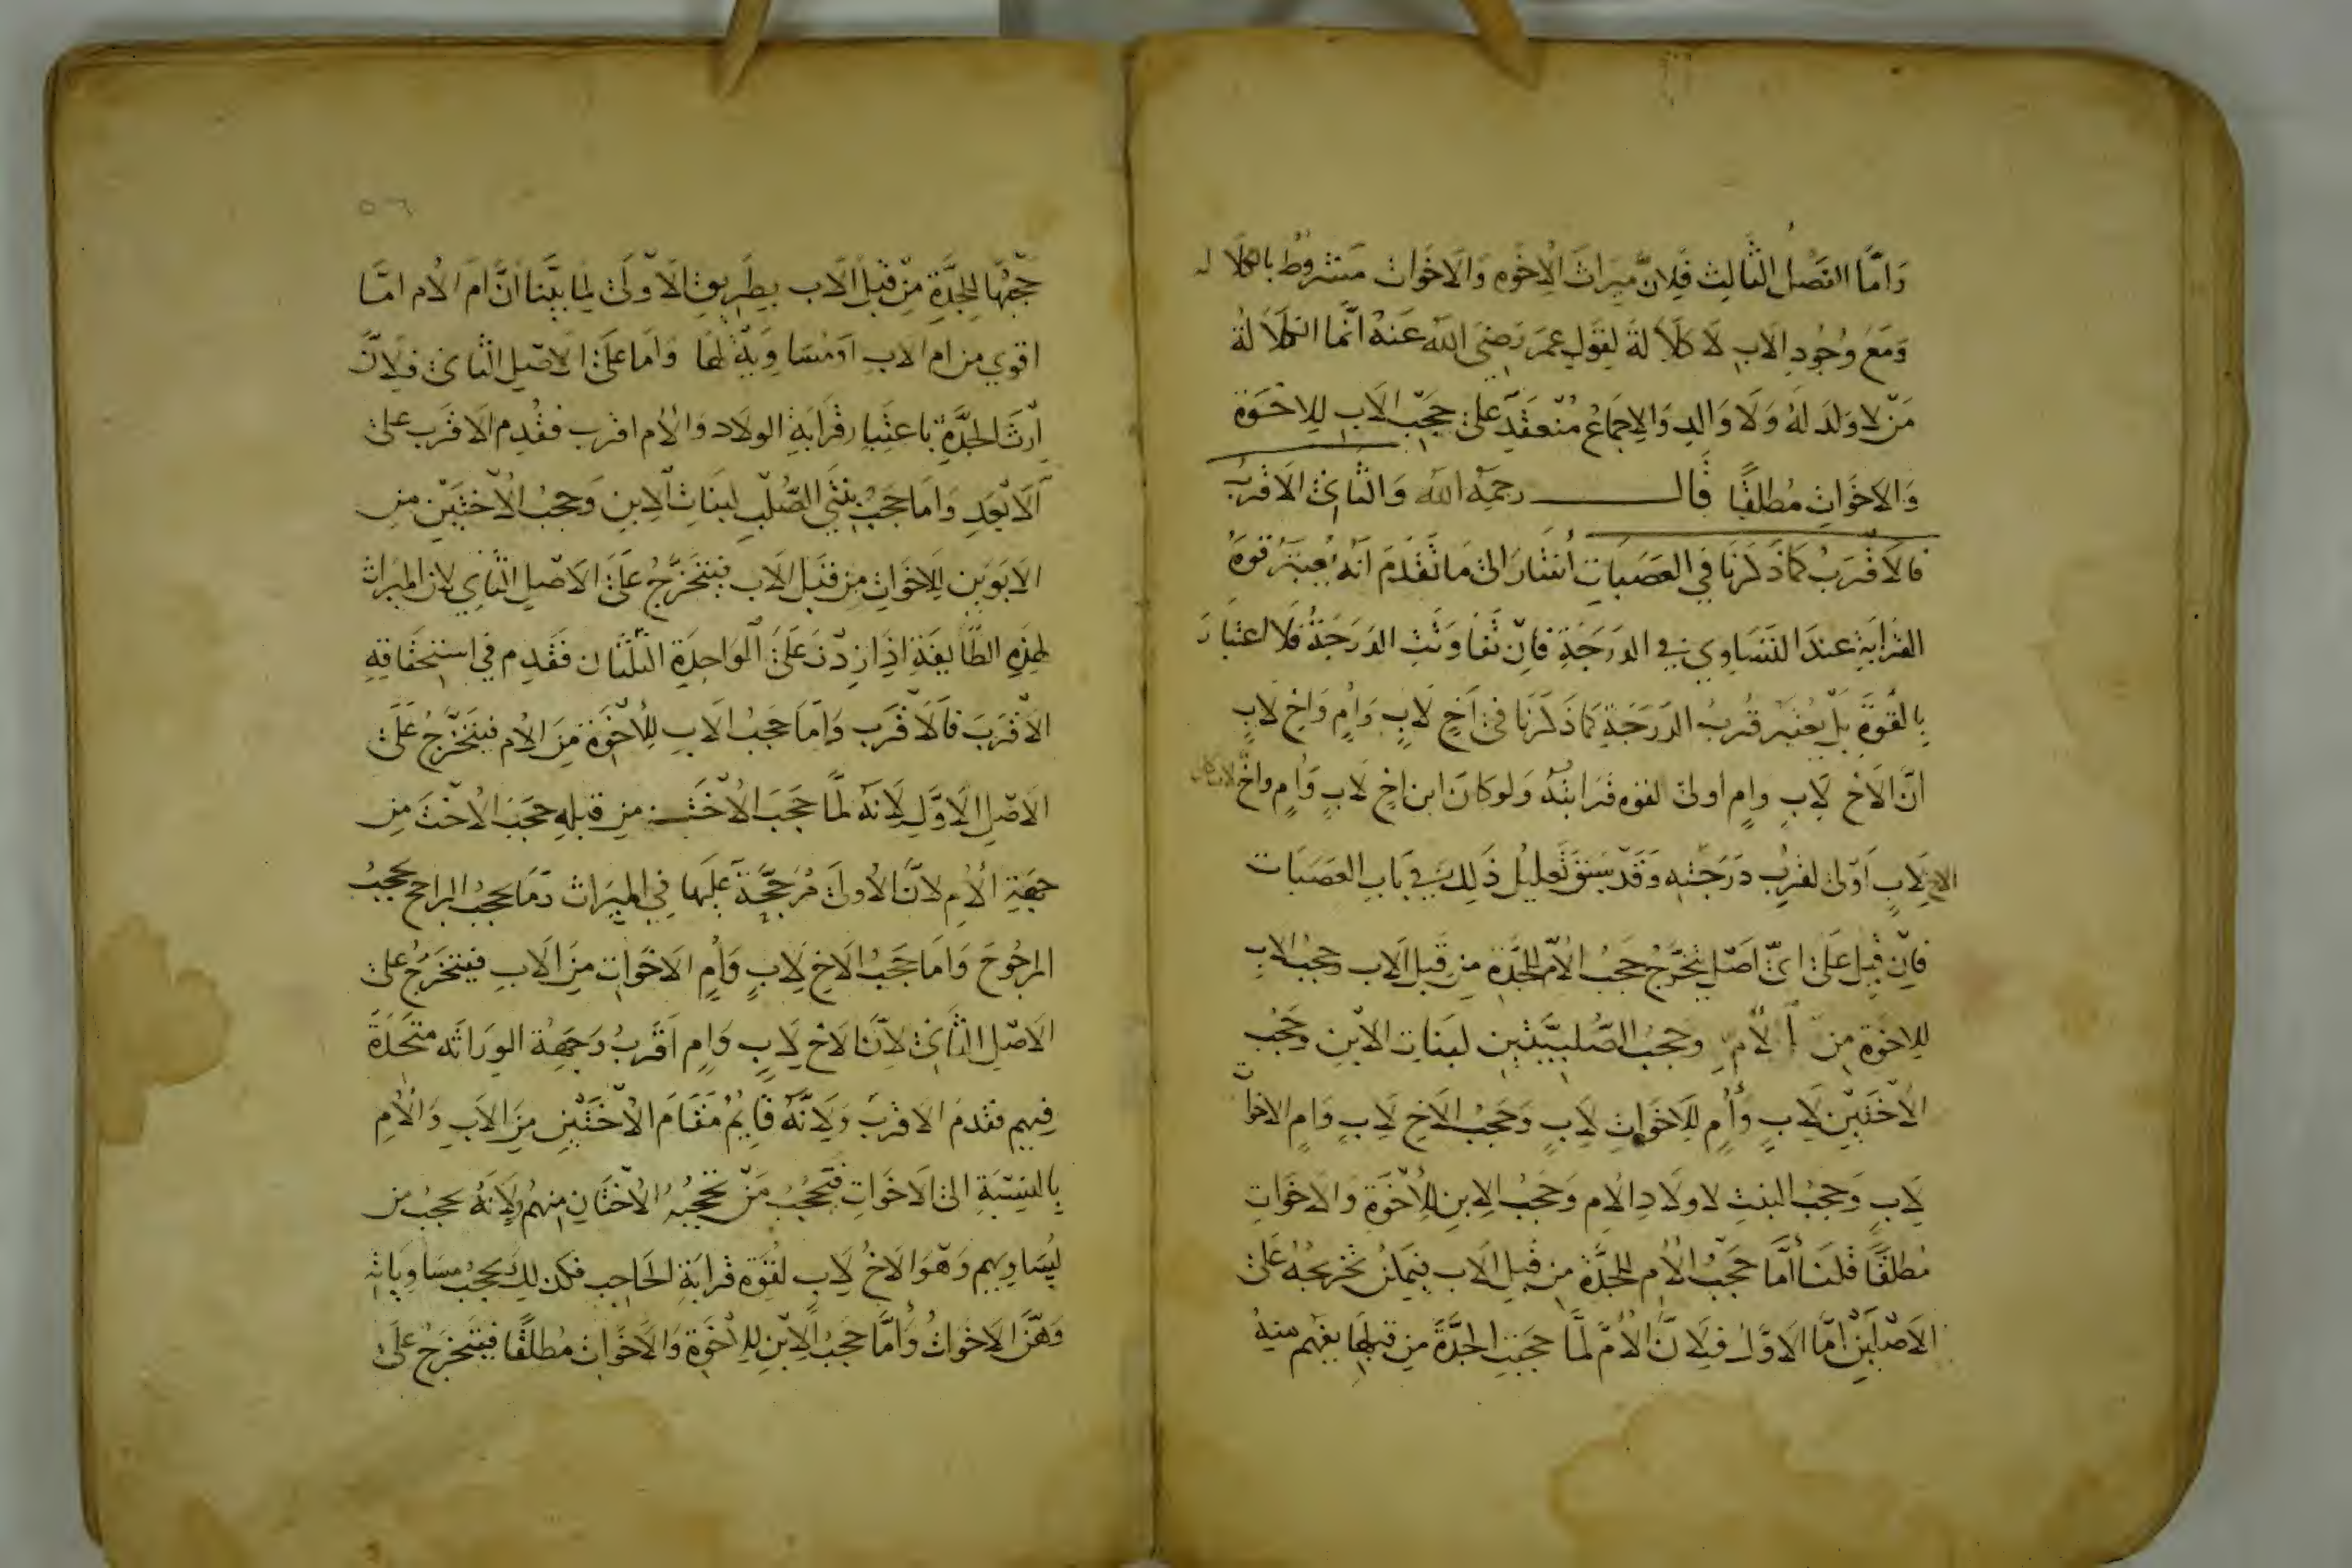 وَامَّا الفَصْلُ الثَّالِث فَلِانَّ مِيرَاثَ الاِخْوهِ وَالاَخَوات مَشْروُط بالكلا له
وَمَعَ وُجُودِ الاَبِ لَا كَلَاَلةَ لِقَولِ عمَر رَضِىَ اللّه عَنهُ انَّما الكَلَاَ لةُ
مَنْ لا وَلدَ لهُ وَلَا وَالدِ وَالاِجمَاعُ مُنْعقَدٌ عَلىٰ حجَبْ الاَبِ لِلاِخْوَة
وَالاَخَوَاتِ مُطلقًا قَالــــــــ رحمَهُ اللّه وَالثَانىٰ الاَقرَبُ
فالاَقْرَبُ كمَا ذَكَرْنَا في العَصَبَاتِ اَشَارَ الىٰ مَا تَقَدَمَ انَهُ يُعتبَرُ قوهُ
القَرَابَةِ عندَ التَسَاوِي في الدَرَجَةِ فاِنْ تَفَاوَتَتِ الدَرَجَةُ فَلَا اعتبَارَ
بالقُوَّةِ بَل يُعتبَر قُربُ الدَرَجَةِ كمَا ذَكَرْنَا فىٰ اَخٍ لَابٍ وَاُمٍ وَاخٍ لَابٍ
انَّ الاَخ لَابٍ وامٍ اولىٰ لقوه قَرَابتهُ وَلوكانَ ابن اخٍ لَابٍ وَاُمٍ واخٌ لاب كان
الاخ لَابٍ اَوْلىٰ لقرُبِ دَرَجَتِهِ وَقَدْ سَبَقَ تَعليُل ذَلِكَ في بَابِ العَصَبَات
فاِنْ قِيلَ عَلىٰ اىّ اصَلٍ يتخَرَّجُ حجَبُ الاُمّ للجَدَّة مِن قِبل الَاب وحجبُ الابِ
للاِخْوَة مِنَ اْلاُمِّ وحجبُ الصُّلبيَّتَيِن لبَنَاتِ الابْنِ وحَجُب
الاُخْتَيْنِ لَابٍ وَاُمٍ لِلاَخَوَاتِ لِاَبٍ وَحَجبُ الاَخِ لِاَبٍ وَامٍ الاخوات
لِاَبٍ وَحَجبُ البنتِ لاولَادِ الاُم وَحَجبُ الاِبنِ للاُخْوَة وَالاَخَوَاتِ
مُطلقًا قلنَا اَمَّا حَجبُ الاُم للجدَّةِ مِن قِبلِ الَاب فيمكنُ تخرْيجُهُ عَلىٰ
الاَصْلَيْنِ امَّا الاَوَّلُ فِلاَنَّ الاُمَّ لمَّا حجَبَتِ الجدَّةَ مِن قبلِهَا يفهَم مِنهُ
حَجْبُهَا للجَدَّةِ مِنْ قِبَلِ الَاب بِطَريِقِ الاَوْلىٰ لِمَا بيَّنا انَّ امَ الاُم امَّا
اقوي من ام الاب اَوْمُسَاوِيَةٌ لهَا وَاما عَلىٰ الاَصْلِ الثانىٰ فلِانَّ
اِرْثَ الجَدَّةِ باعتِبارِ قَرَابَةِ الولَاد وَالاُم اقرب فقُدِم الاَقرَب علىٰ
الاَبْعَدِ وَامَا حَجَبُ بِنْتَي الصُّلْبِ لبَنَاتِ الاِبنِ وَحجبُ الاُخْتَيْنِ مِن
الاَبوَيْن لِلاخَواتِ مِن قبَل الاَب فيَتخَرَّجُ عَلَىٰ الاَصْلِ الثَانِي لان الميراث
لهذِهِ الطَّايفَةِ اذَا ازدَدْنَ عَلىَٰ الوَاحِدَة الثُلُثَان فقُدِم فى اسْتِحقَاقِهِ
الاَقْرَبَ فَالاَقْرَب وَامَا حَجبُ الاَبِ لِلاُخْوَة مِنَ الاُم فيتَخَرَّجُ عَلَىٰ
الاَصْلِ الاَوَّلِ لِاَنهُ لمَّا حَجَبَ الاُخْتَ مِن قبلِهِ حجَبَ الاُخْتَ مِن
جهَةِ الاُمِ لانَّ الاُولىٰ مُرَجَّحَةٌ عليَهَا فِي الميَرَاث وَمَا يحجبُ الراجح يحجبُ
المرجُوحَ وَامَا حَجبُ الاَخِ لِاَبٍ وَاُمٍ الاَخَوَاتِ مِنَ الاَبِ فيَتخَرَجُ علىٰ
الاَصْلِ الثَانىٰ لاَنَّ الاَخ لِاَبٍ وَامٍ اَقرَبُ وَجهَةُ الوِرَاثَه متحَدَةٌ
فيهِم فقدمَ الاقَربَ وَلِاَنَّهُ قَايُمٌ مَقَامَ الاُخْتَيْن مِنَ الاَبِ وَالاُمِ
بالنِسْبَةِ الىٰ الاَخَوَاتِ فتَحجُبُ مَنْ تحجبُهُ الاُخْتَان منهُم وِلاَنهُ يحجبُ من
يُسَاوِيهم وَهوَ الاَخُ لَابٍ لقُوَّةِ قَرابَةِ الحَاجِب فكذلِكَ يحجبُ مسَاوِيَاتهِ
وَهنَّ الاَخَوَاتُ وَاَمَّا حَجبُ الاِبْنِ لِلاِخْوَةِ وَالاَخَوَاتِ مُطلَقًا فيَتَخرَجُ عَلىٰ